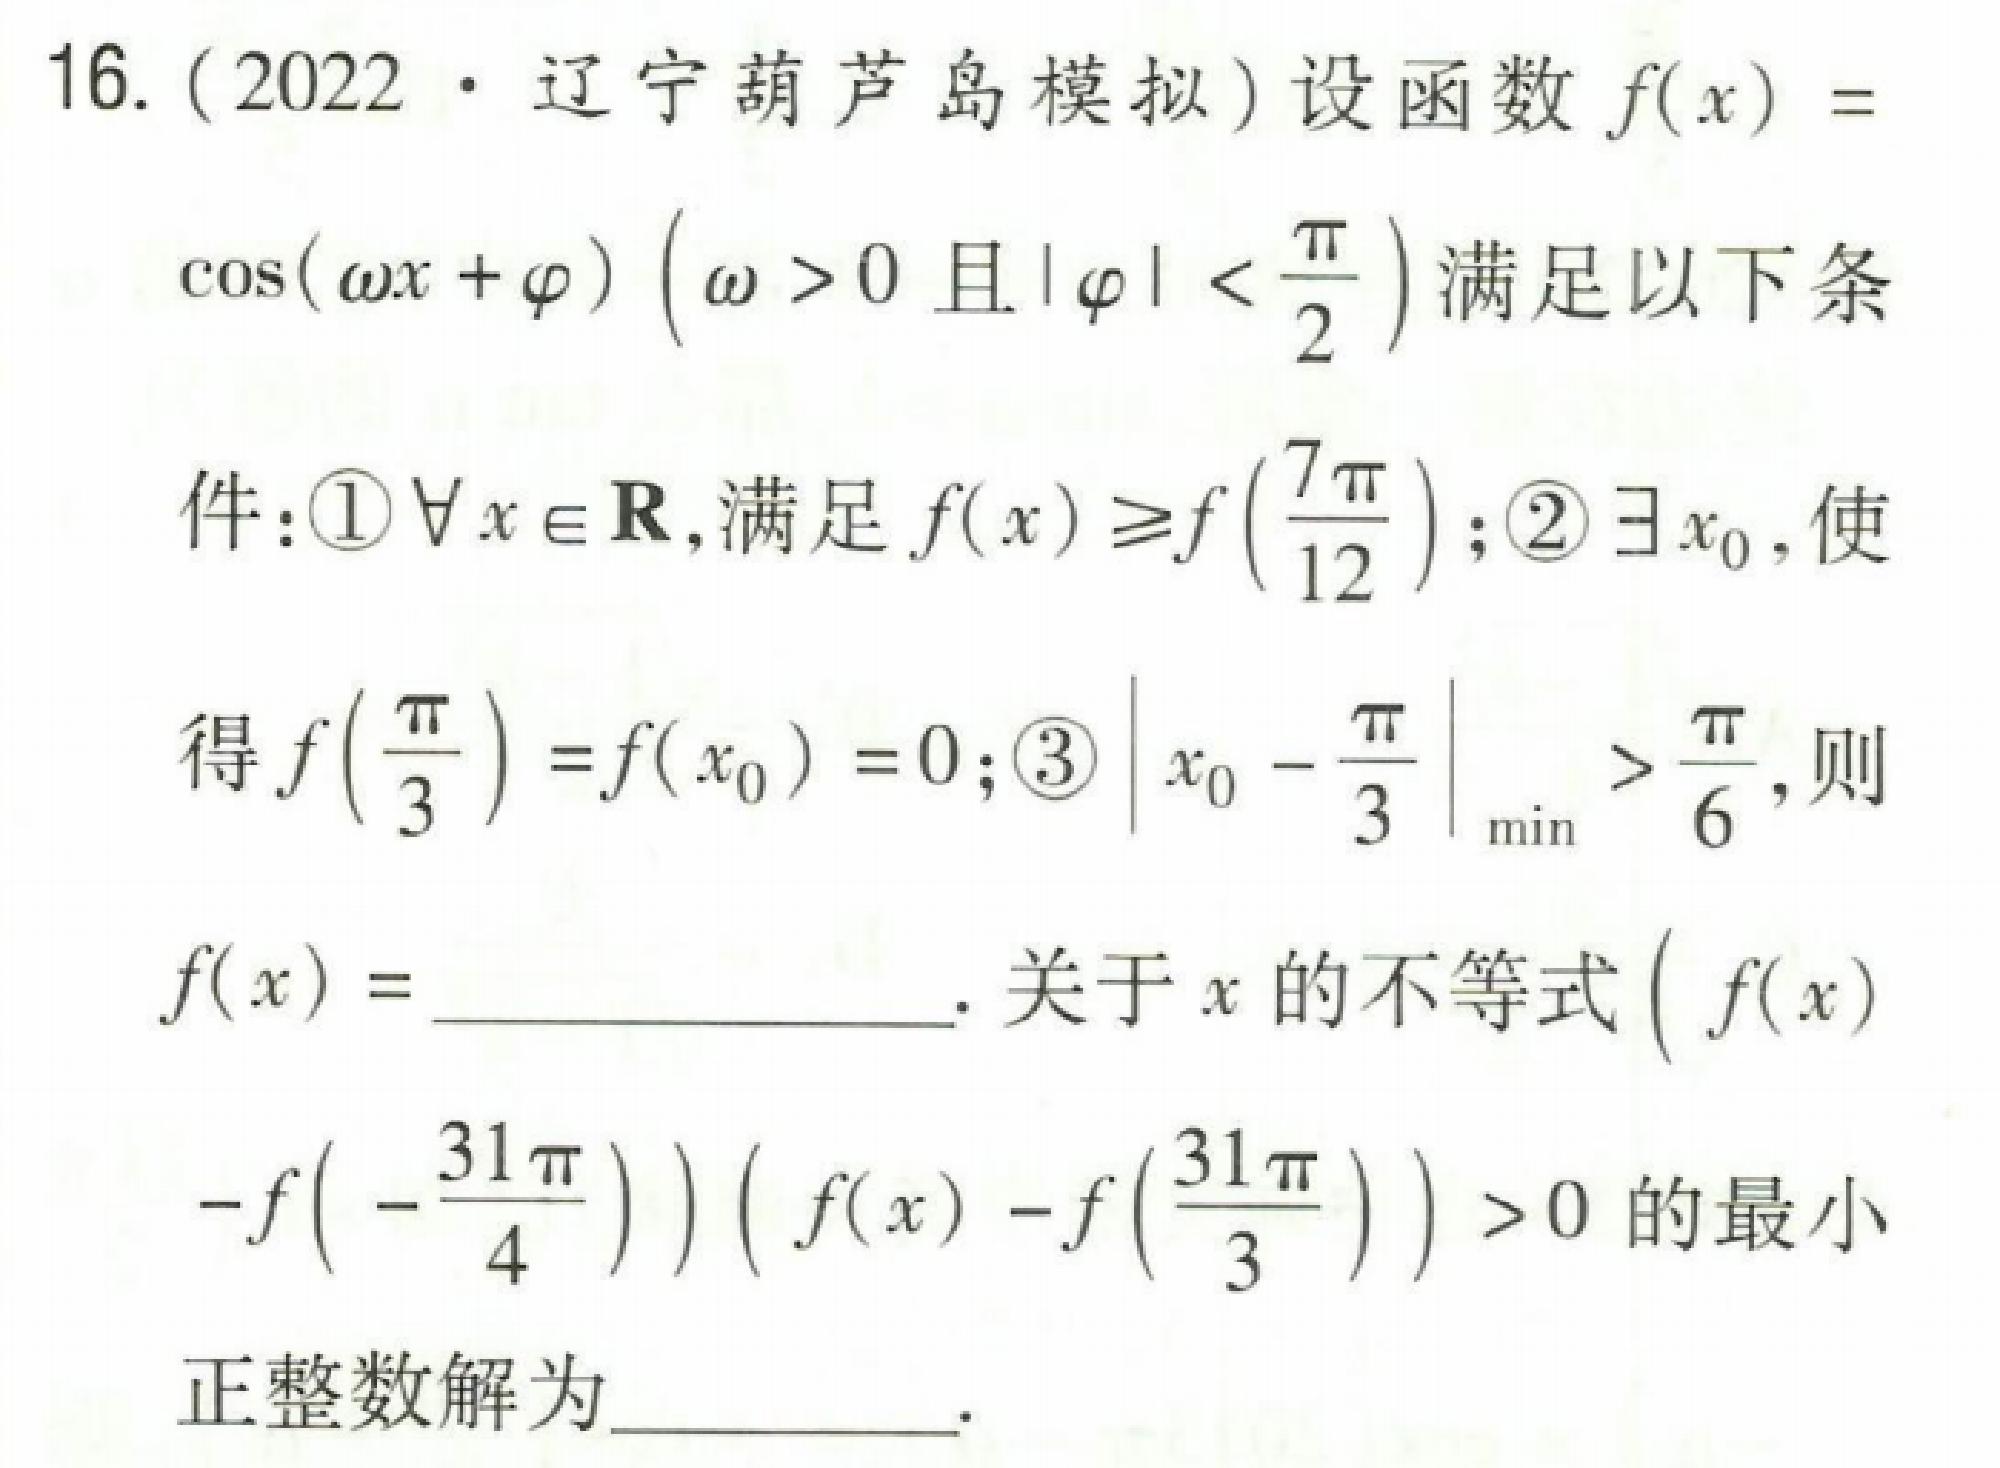 16. (2022 · 辽宁葫芦岛模拟) 设函数 f(x) =
cos(ωx + φ) (ω > 0 且 |φ| < π/2) 满足以下条
件:① ∀x ∈ R, 满足 f(x) ≥ f(7π/12); ② ∃x₀, 使
得 f(π/3) = f(x₀) = 0; ③ |x₀ - π/3|min > π/6, 则
f(x) = ________. 关于 x 的不等式 (f(x)
-f(-31π/4))(f(x) - f(31π/3)) > 0 的最小
正整数解为________.